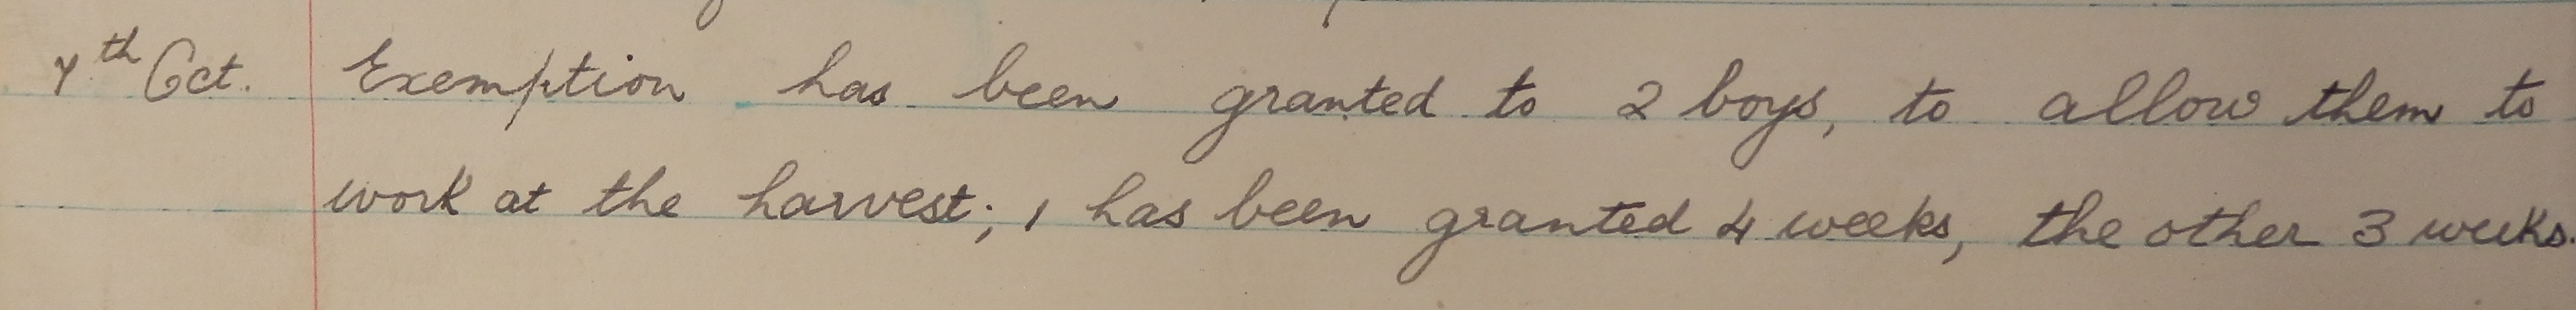 7th Oct. Exemption has been granted to 2 boys, to allow them to
work at the harvest; 1 has been granted 4 weeks, the other 3 weeks.